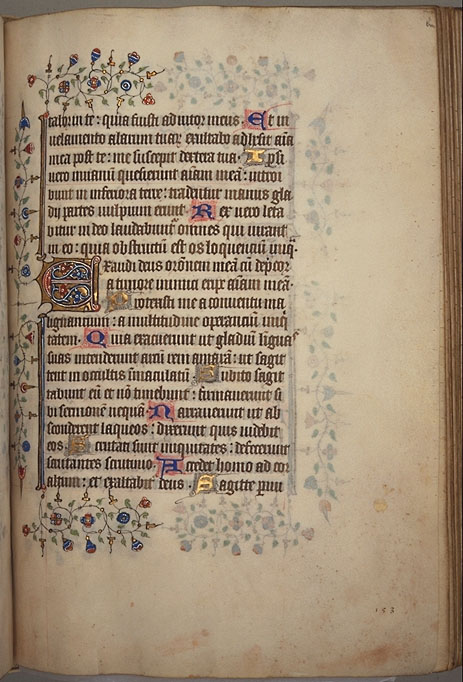 tabor in te: quia fuisti adiutor meus. Et in
velamento alarum tuar exultabo adhesit aīa
mea post te: me suscepit dextera tua. Ipsi
vero in vanū quesierunt aīam meā: introi
bunt in inferiora terre: tradentur in manus gla
dij partes vulpium erunt. Rex vero leta
bitur in deo laudabunt omnes qui iurant
in eo: quia obstructū est os loquenciū iniq
Exaudi deus orōnem meā cū depcor
a timore inimici eripe aīam meā.
Protexisti me a conventu ma
lignantium: a multitudine operanciū iniq
tatem. Quia exacuerunt ut gladiū linguas
suas intenderunt arcū rem amarā: ut sagit
tent in occultis īmaculatū. Subito sagit
tabunt eū et nō timebunt: firmaverunt si
bi sermonem nequā. Narraverunt ut ab
sconderent laqueos: dixerunt quis videbit
eos. Scrutati sunt iniquitates: defecerunt
scrutantes scrutinio. Accedet homo ad cor
altum: et exaltabitur deus. Sagitte parvu
153